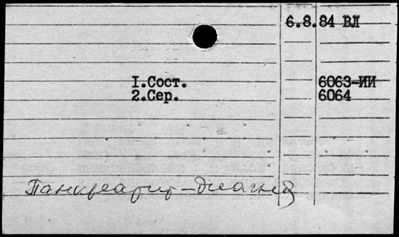 6.8.84 ВЛ
I.Сост. 6063-ИИ
2.Сер. 6064
Панкреатит-диагноз